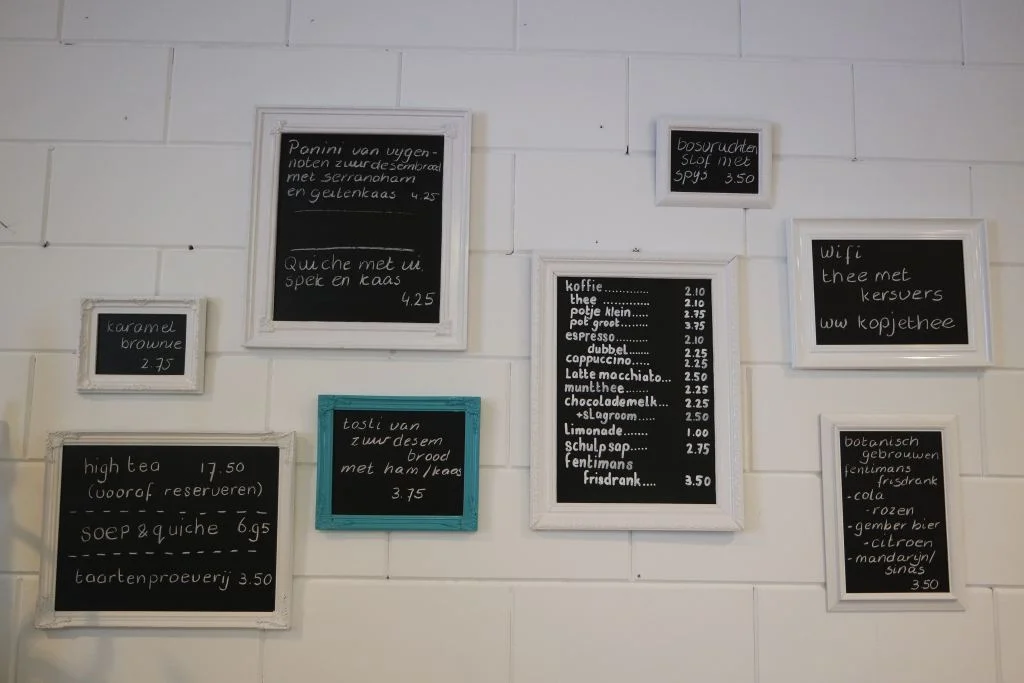 Panini van vygen-
noten zuurdesembrood
met serranoham
en geitenkaas 4.25
Quiche met ui,
spek en kaas
4.25
bosvruchten
slof met
spijs 3.50
Wifi
thee met
kersvers
ww kopjethee
karamel
brownie
2.75
koffie............ 2.10
thee ............ 2.10
potje klein..... 2.75
pot groot..... 3.75
espresso........ 2.10
dubbel....... 2.25
cappuccino..... 2.25
Latte macchiato... 2.50
muntthee....... 2.25
chocolademelk... 2.25
+slagroom..... 2.50
Limonade....... 1.00
schulp sap..... 2.75
fentimans
frisdrank.... 3.50
tosti van
zuurdesem
brood
met ham/kaas
3.75
high tea 17.50
(vooraf reserveren)
soep & quiche 6.95
taartenproeverij 3.50
botanisch
gebrouwen
fentimans
frisdrank
-cola
-rozen
-gember bier
-citroen
-mandarijn/
sinas
3.50